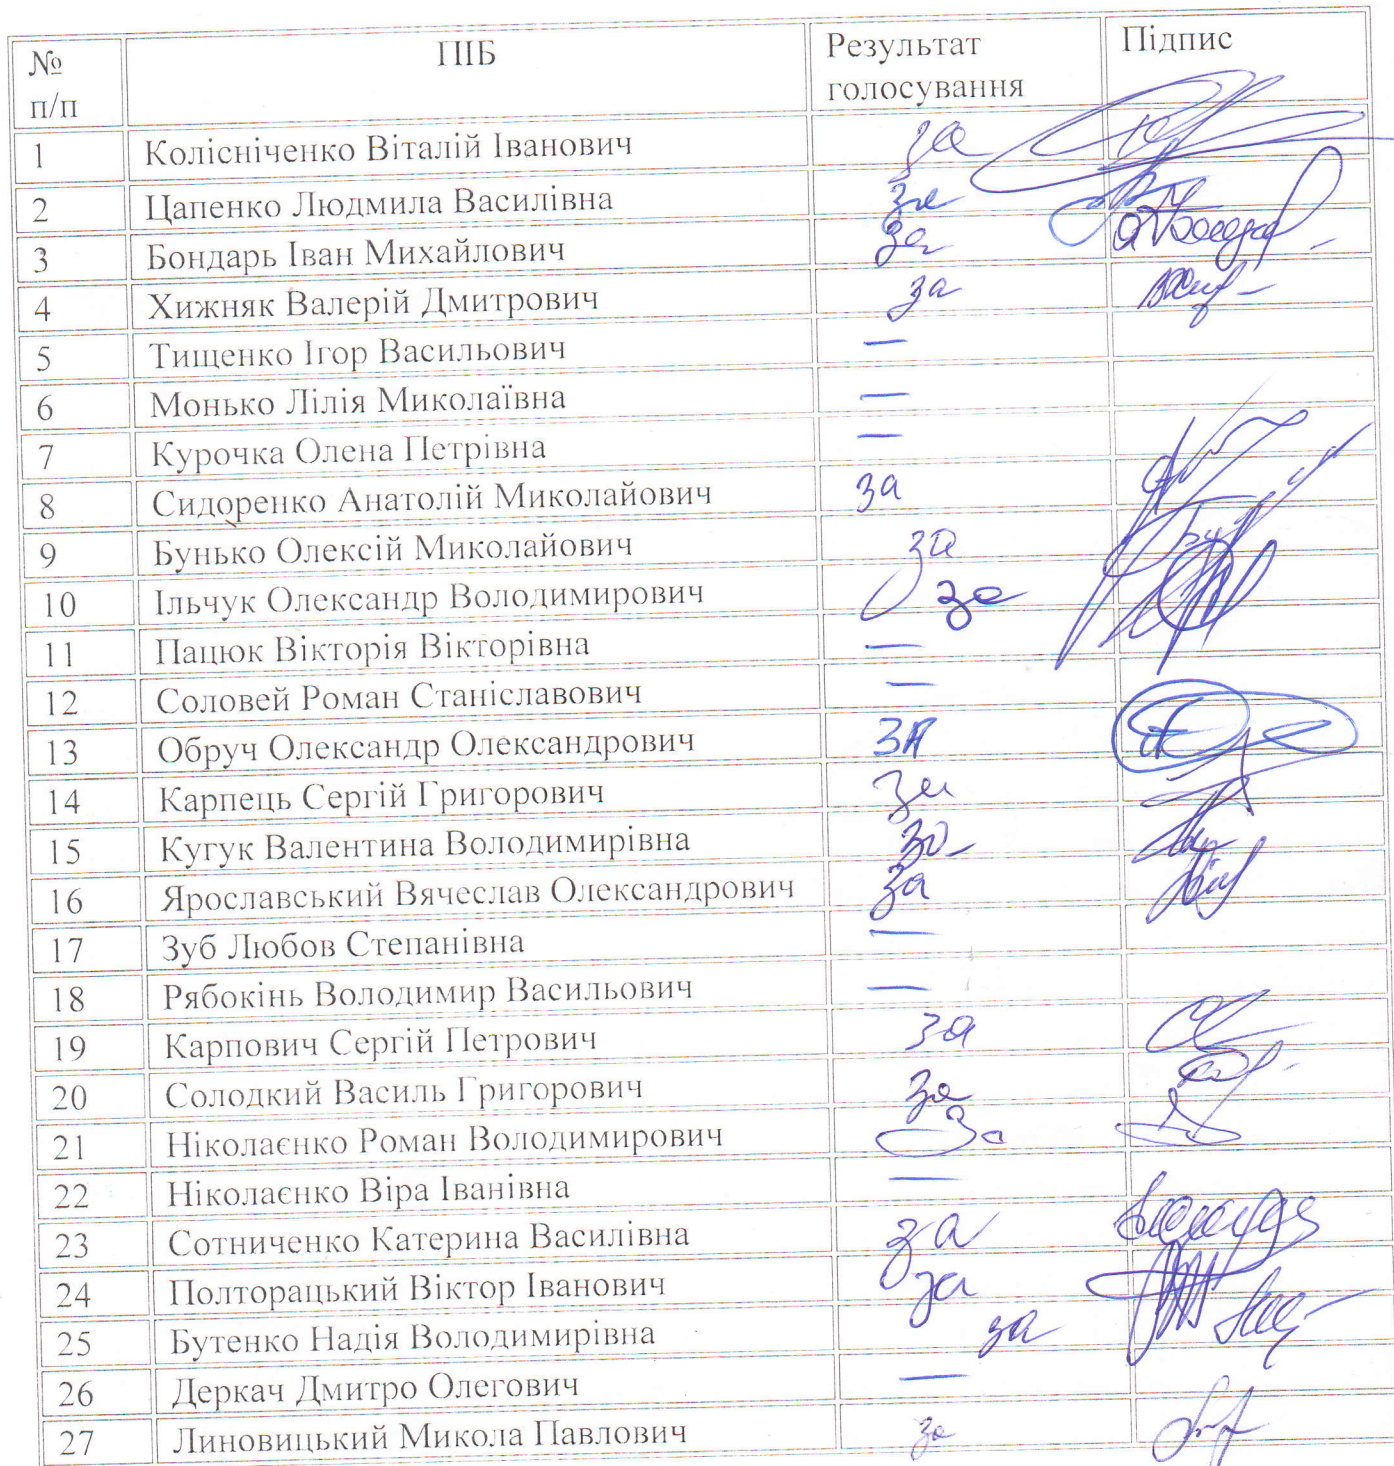 № п/п ПІБ Результат голосування Підпис
1 Колісніченко Віталій Іванович за
2 Цапенко Людмила Василівна за
3 Бондарь Іван Михайлович за
4 Хижняк Валерій Дмитрович за
5 Тищенко Ігор Васильович —
6 Монько Лілія Миколаївна —
7 Курочка Олена Петрівна —
8 Сидоренко Анатолій Миколайович за
9 Бунько Олексій Миколайович за
10 Ільчук Олександр Володимирович за
11 Пацюк Вікторія Вікторівна —
12 Соловей Роман Станіславович —
13 Обруч Олександр Олександрович ЗА
14 Карпець Сергій Григорович за
15 Кугук Валентина Володимирівна за
16 Ярославський Вячеслав Олександрович за
17 Зуб Любов Степанівна —
18 Рябокінь Володимир Васильович —
19 Карпович Сергій Петрович за
20 Солодкий Василь Григорович за
21 Ніколаєнко Роман Володимирович За
22 Ніколаєнко Віра Іванівна —
23 Сотниченко Катерина Василівна за
24 Полторацький Віктор Іванович за
25 Бутенко Надія Володимирівна за
26 Деркач Дмитро Олегович —
27 Линовицький Микола Павлович за